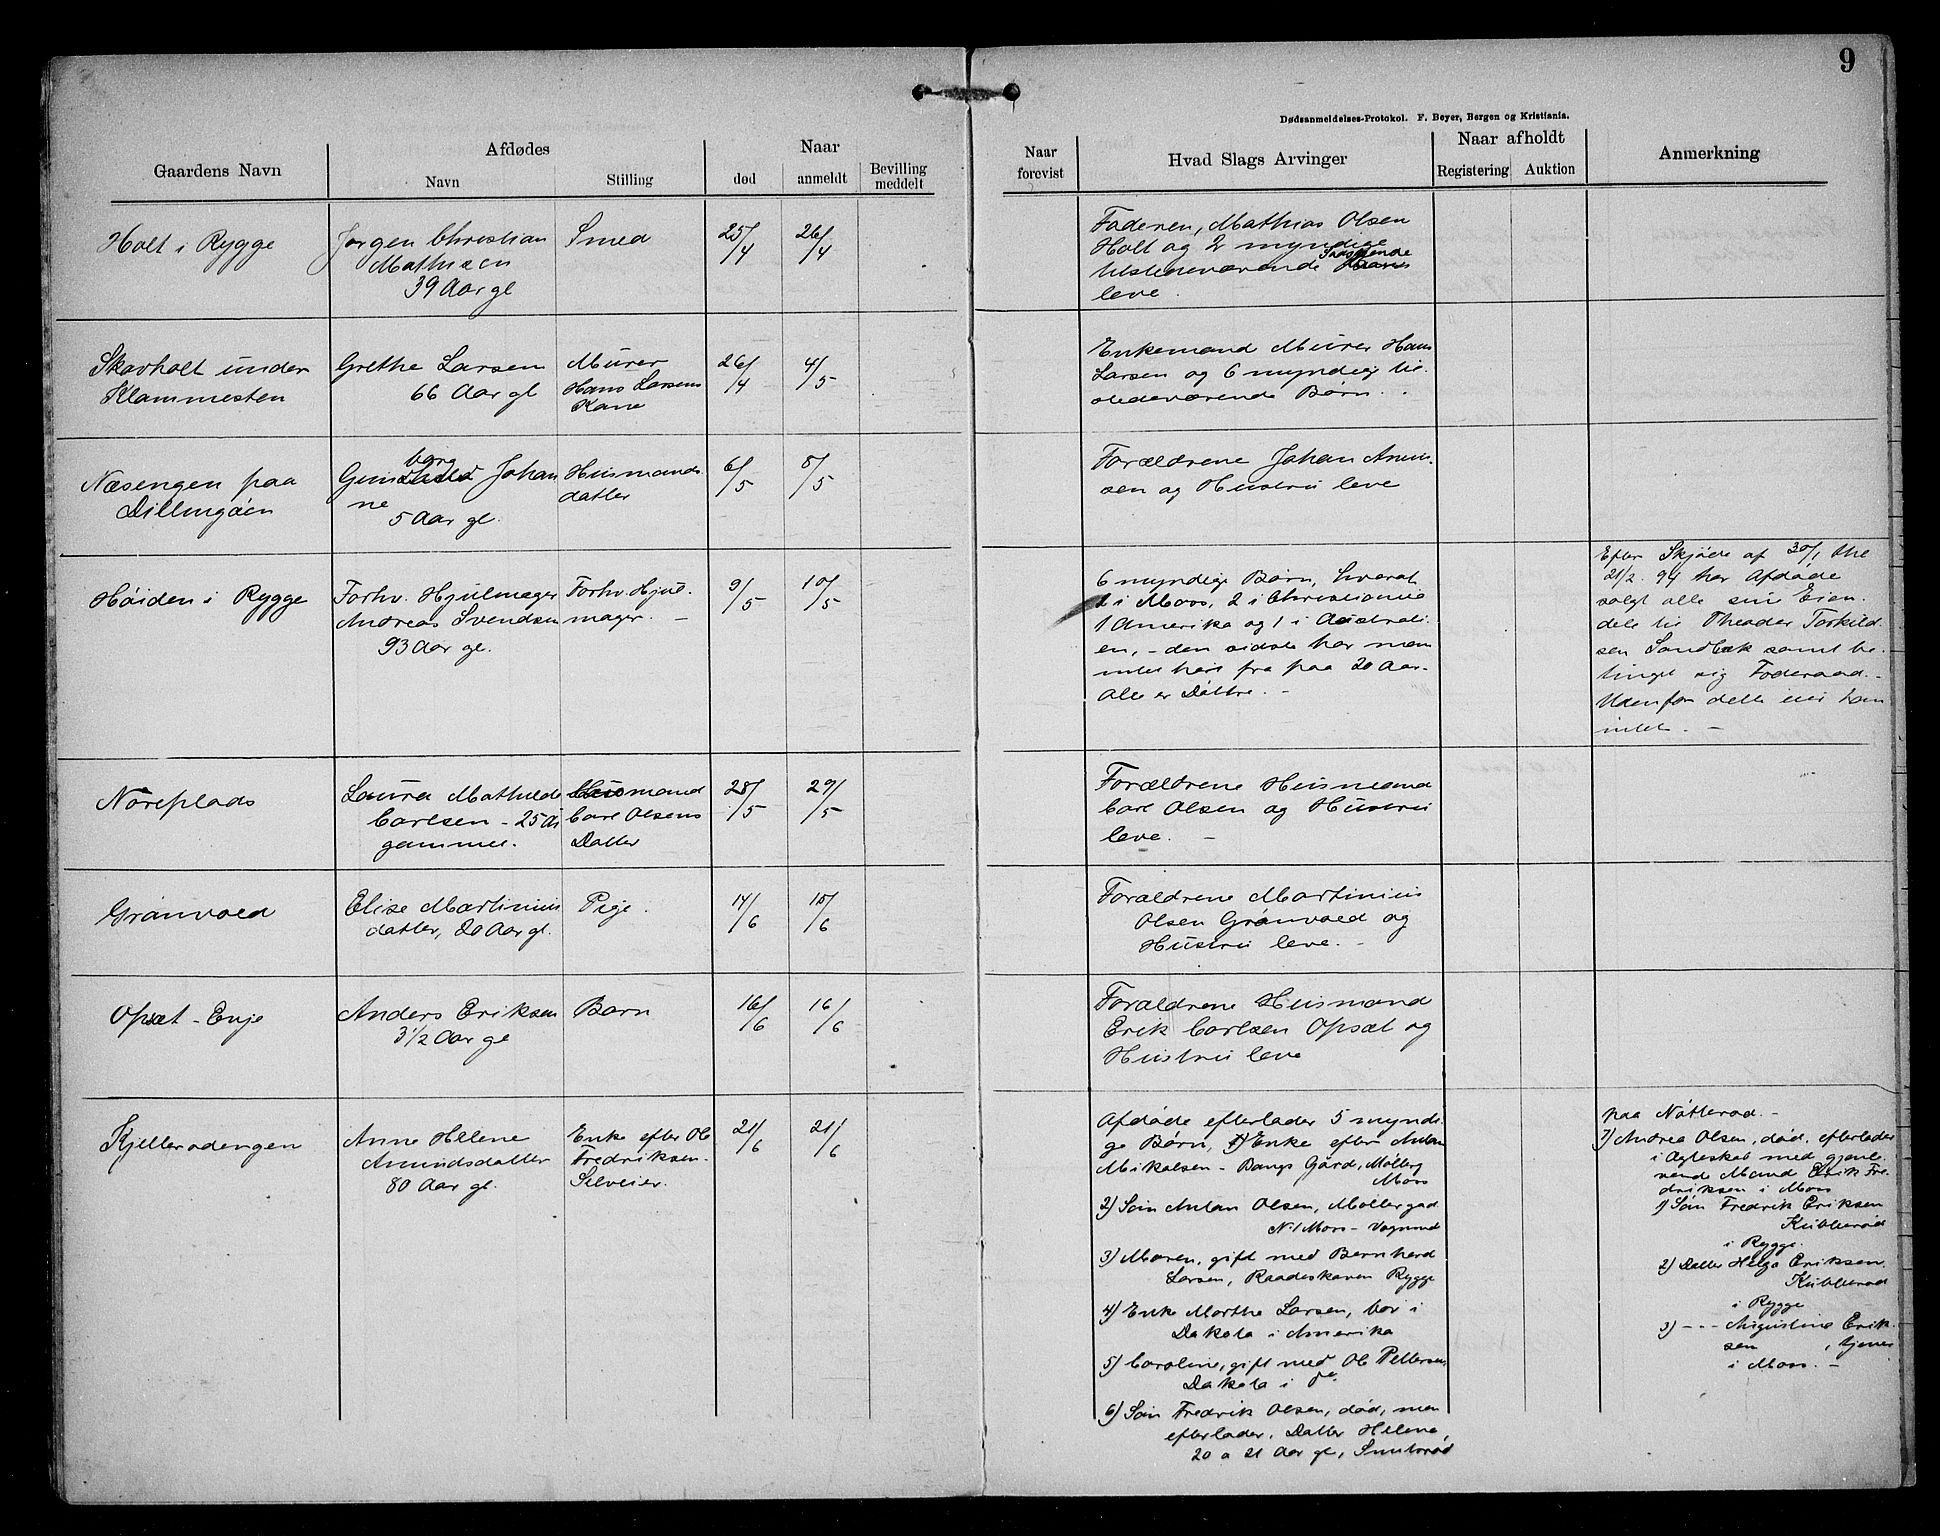 9
Dødsanmeldelses-Protokol. F. Beyer, Bergen og Kristiania.
Gaardens Navn
Afdødes
Navn
Stilling
Naar
død
anmeldt
Bevilling
meddelt
Naar
forevist
Hvad Slags Arvinger
Naar afholdt
Registering
Auktion
Anmerkning
Holt i Rygge
Jørgen Christian
Mathisen
39 Aar gl
Smed
25/4
26/4
Faderen, Mathias Olsen
Holt og 2 myndige
tilstedeværende Sødskende
leve.
Skovholt under
Klammesten
Grethe Larsen
66 Aar gl
Murer
Hans Larsens
Kone
26/4
4/5
Enkemand Murer Hans
Larsen og 6 myndig til
stedeværende Børn.
Næsengen paa
Dillingöen
Gunborg Johan
ne
5 Aar gl.
Husmands
datter
6/5
8/5
Forældrene Johan
sen og Hustru leve
Höiden i Rygge
Forhv. Hjulmager
Andreas Svendsen
93 Aar gl.
Forhv. Hjul
mager. -
9/5
10/5
6 myndige Børn, hvoraf
2 i Moss, 2 i Christiania
1 Amerika og 1 i Australi
en, - den sidste har man
intet hørt fra paa 20 Aar.
Alle er Døttre. -
Efter Skjøde af 30/1 thl
21/2. 94 har Afdøde
solgt alle sine Eien
dele til Theodor Torkild
sen Sandbæk samt be
tinget sig Føderaad. -
Udenfor dette eier han
intet. -
Nöreplads
Laura Mathilde
Carlsen - 25 Aar
gammel.
Husmand
Carl Olsens
Datter
28/5
29/5
Forældrene Husmand
Carl Olsen og Hustru
leve. -
Grönvold
Elise Martinius
datter, 20 Aar gl.
Pige.
14/6
15/6
Forældrene Martinius
Olsen Grönvold og
Hustru leve. -
Opsæt - Enge
Anders Eriksen
3 1/2 Aar gl
Barn
16/6
16/6
Forældrene Husmand
Erik Carlsen Opsæt og
Hustru leve
Kjellerødengen
Anne Helene
Amundsdatter
80 Aar gl.
Enke efter Ole
Fredriksen
21/6
21/6
Afdøde efterlader 5 myndi
ge Børn, 1) Enke efter Anton
Mikalsen - Bangs Gård, Møllerg
Moss
2) Sön Anton Olsen, Møllergad
N. 1 Moss - Vognmd
3) Maren, gift med Bernhard
Larsen, Raadeskaven Rygge
4) Enke Marthe Larsen, bor i
Dakota i Amerika
5) Caroline, gift med Ole Pettersen
Dakota i do
6) Sön Fredrik Olsen, død, men
efterlader, Datter Helene,
20 a 21 Aar gl,
paa Nötterød. -
7) Andrea Olsen, död, efterlader
i Ægteskab med gjenle
vende Mand Erik Fre
driksen i Moss
1) Sön Fredrik Eriksen
Kubberød
i Rygge.
2) Datter Helga Eriksen
Kubberød
i Rygge
3) - - - Augustine Erik
sen, tjener
i Moss. -